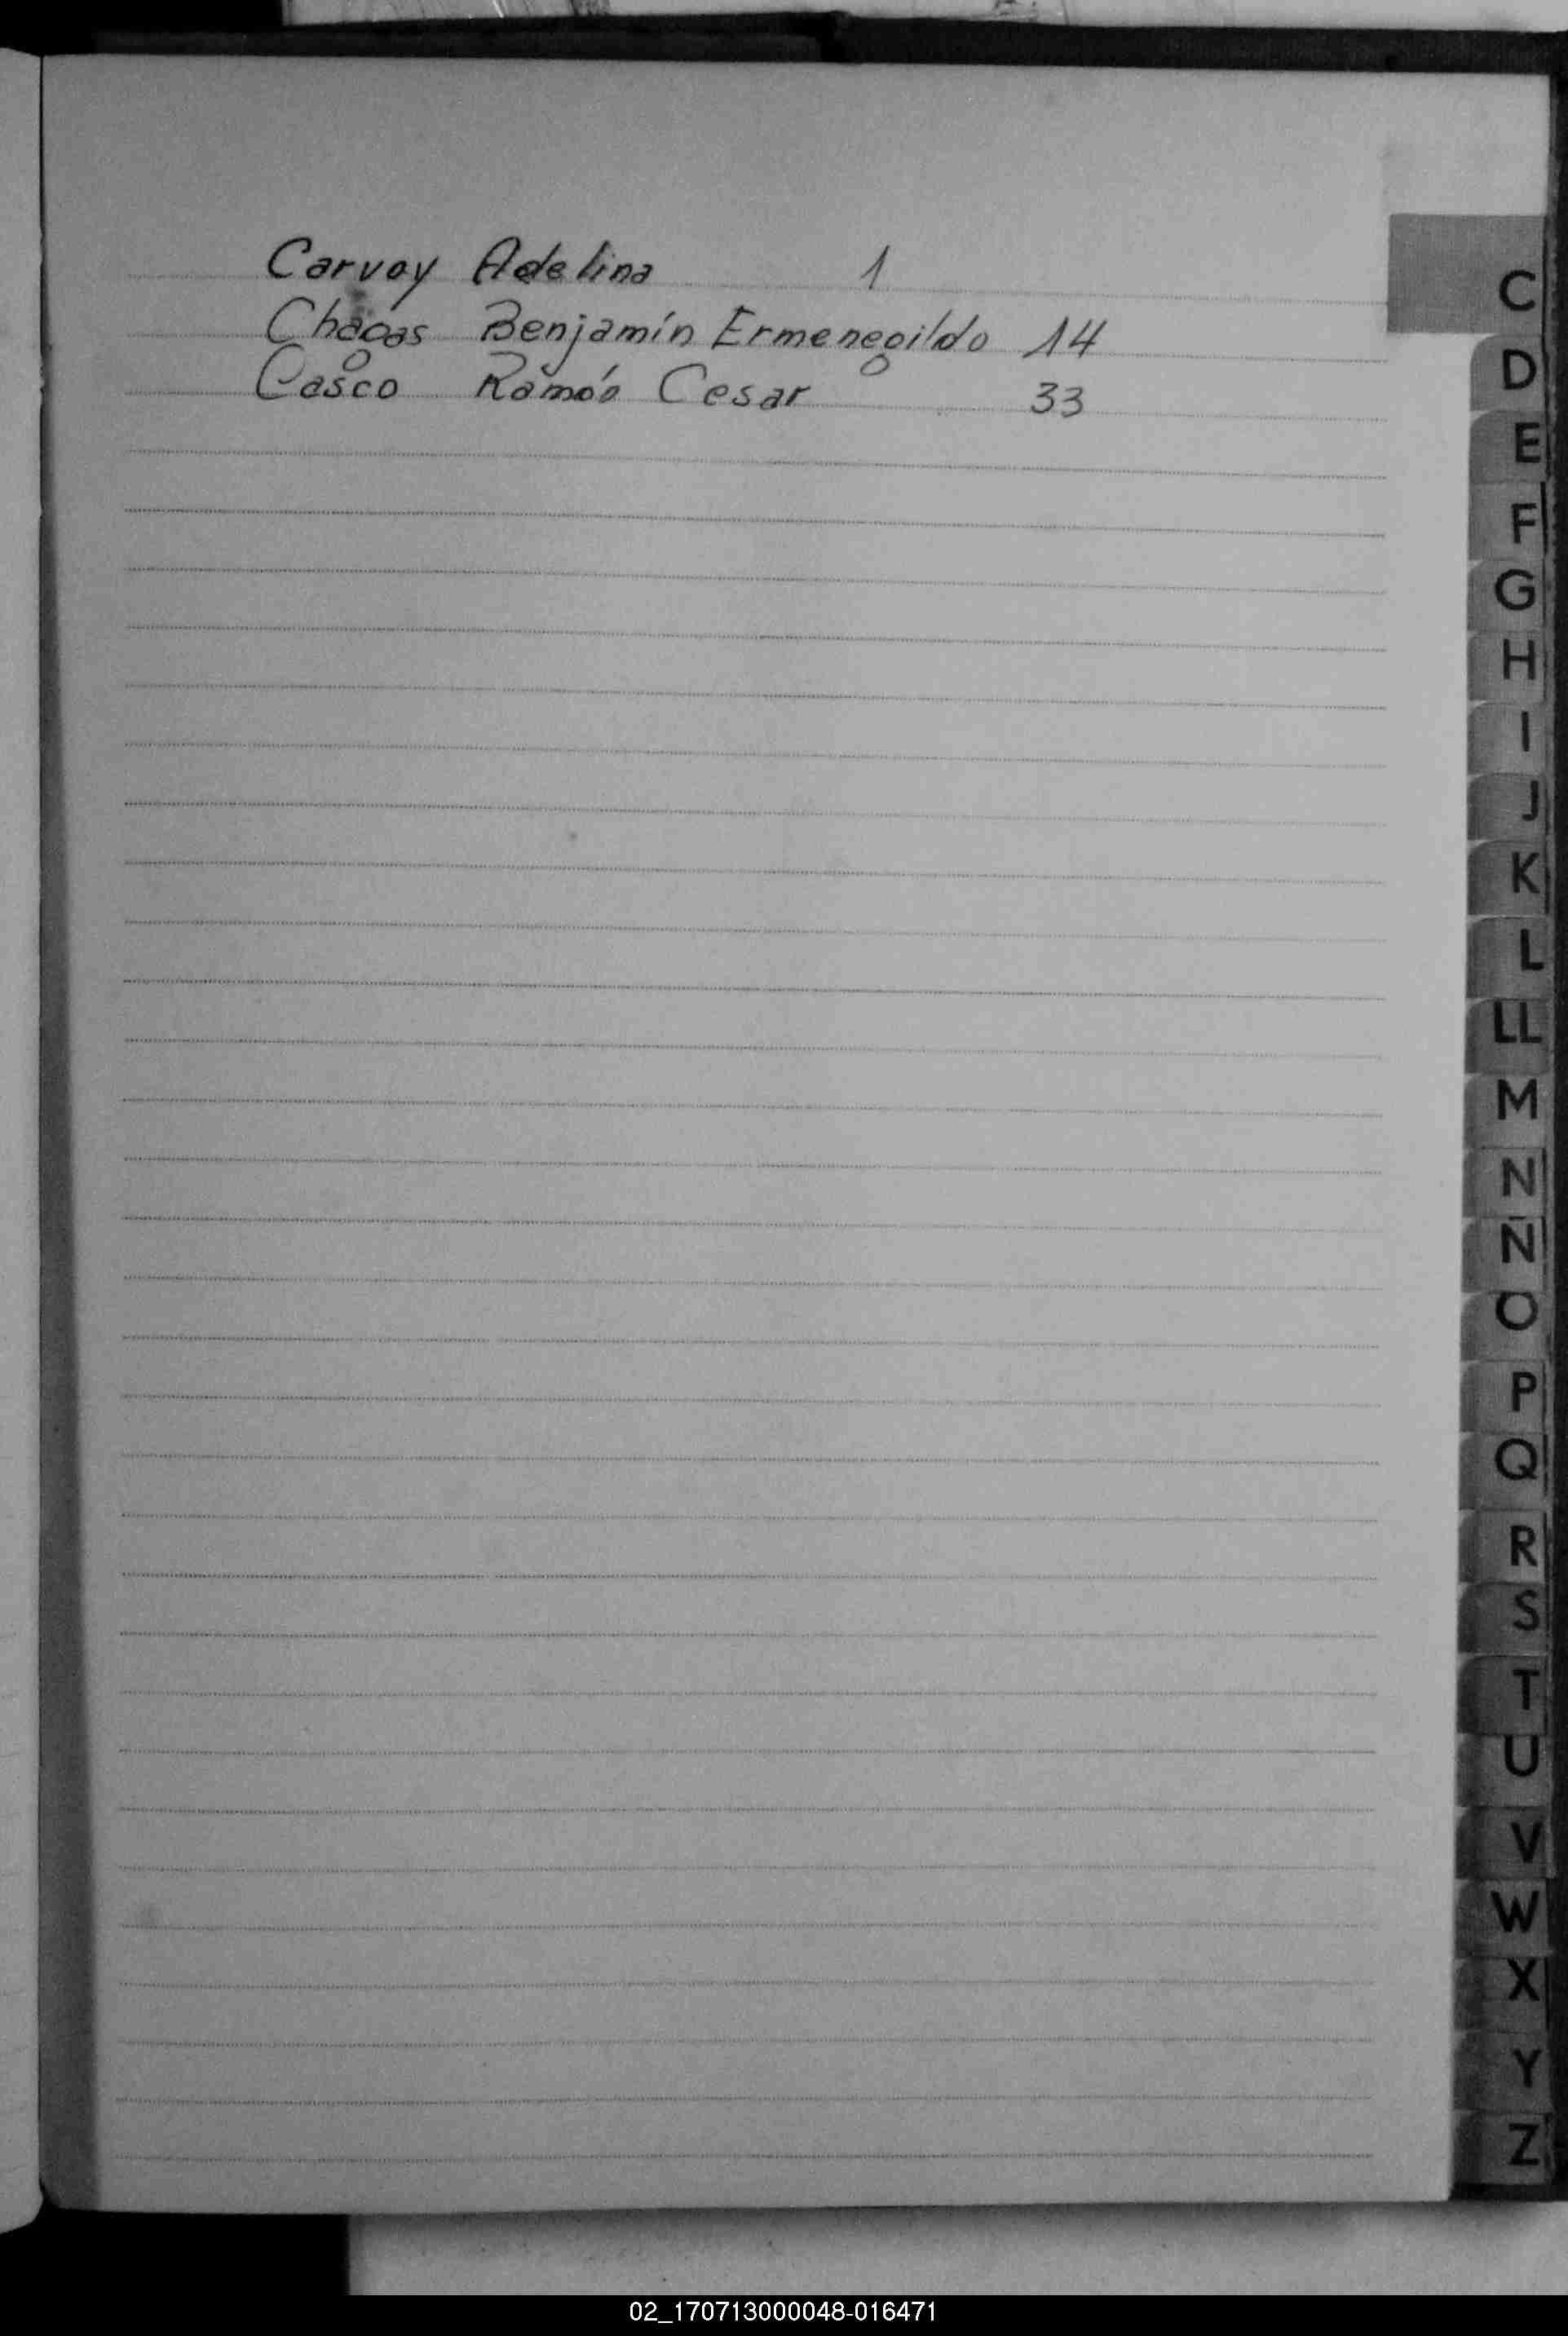 Carvoy Adelina 1
Chagas Benjamín Ermenegildo 14
Casco Ramón Cesar 33
C
D
E
F
G
H
I
J
K
L
LL
M
N
Ñ
O
P
Q
R
S
T
U
V
W
X
Y
Z
02_170713000048-016471